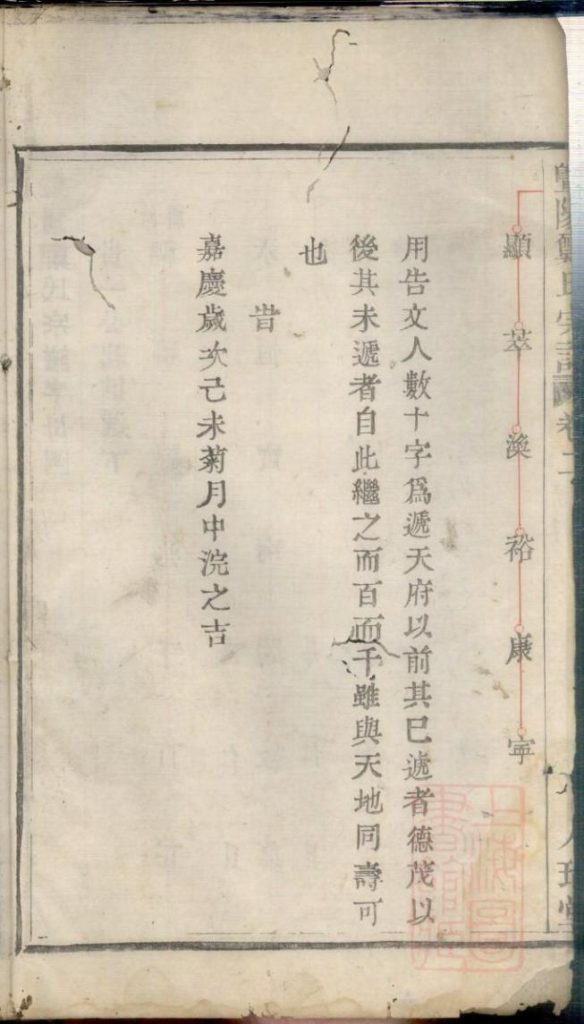 顯萃渙裕康寧
用告文人數十字爲遞天府以前其已遞者德茂以
後其未遞者自此繼之而百而千雖與天地同壽可
也
旹
嘉慶歲次己未菊月中浣之吉
鄭氏宗譜卷二